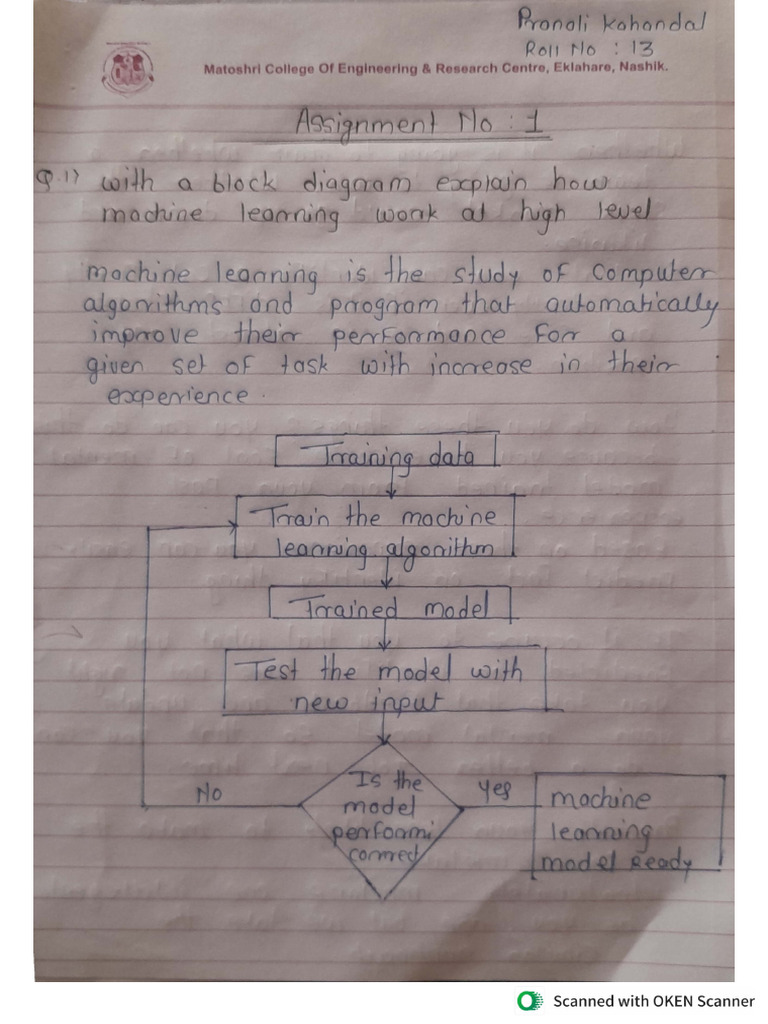 Pranali Kahandal
Roll No : 13
Matoshri College Of Engineering & Research Centre, Eklahare, Nashik.
Assignment No : 1
Q.1) with a block diagram explain how
machine learning work at high level
machine learning is the study of computer
algorithms and program that automatically
improve their performance for a
given set of task with increase in their
experience.
Training data
Train the machine
learning algorithm
Trained model
Test the model with
new input
Is the
model
performi
correct
No
yes
machine
learning
model Ready
Scanned with OKEN Scanner